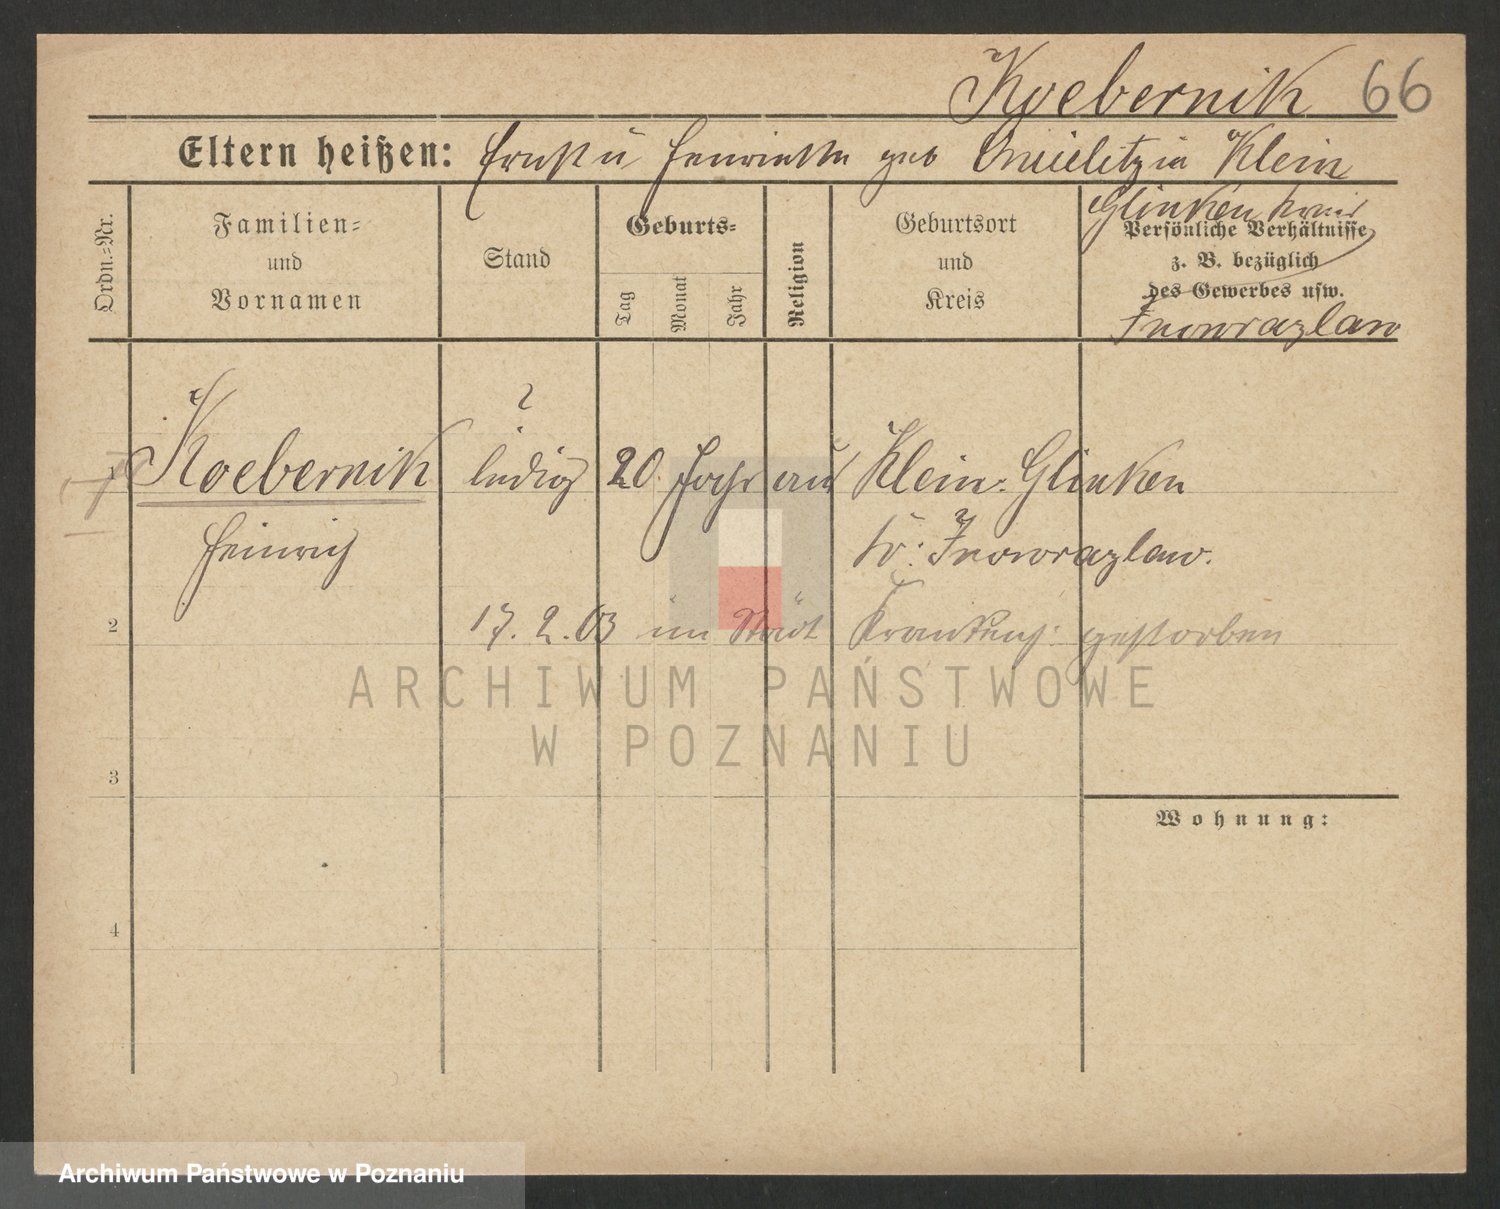 Koebernik 66
Eltern heißen: Ernst u Henriette geb in Klein
Glinken Kreis
Inowrazlaw
Ordn.-Nr.
Familien-
und
Vornamen
Stand
Geburts-
Tag
Monat
Jahr
Religion
Geburtsort
und
Kreis
Persönliche Verhältnisse
z. B. bezüglich
des Gewerbes usw.
1 Koebernik ledig 20 Jahr aus Klein Glinken
Heinrich Kr. Inowrazlaw.
2 17. 2. 03 im Städt Krankenh. gestorben
3
Wohnung:
4
ARCHIWUM PAŃSTWOWE
W POZNANIU
Archiwum Państwowe w Poznaniu